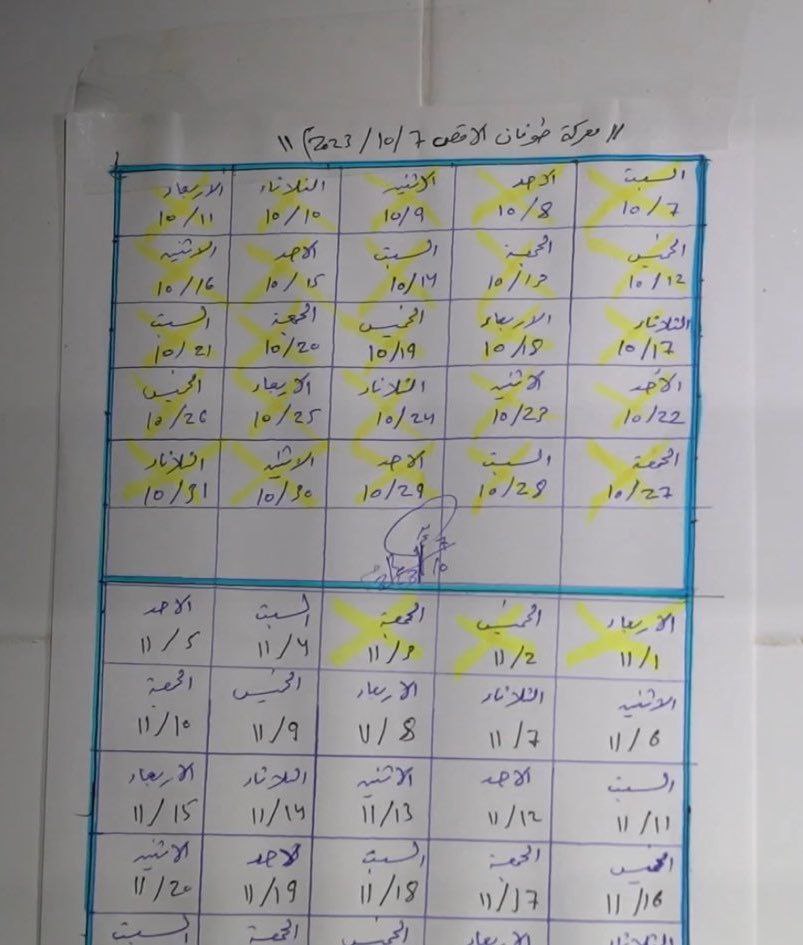 "معركة طوفان الاقصى 7/10/2023)"
السبت الاحد الاثنين الثلاثاء الاربعاء
10/7 10/8 10/9 10/10 10/11
الخميس الجمعة السبت الاحد الاثنين
10/12 10/13 10/14 10/15 10/16
الثلاثاء الاربعاء الخميس الجمعة السبت
10/17 10/18 10/19 10/20 10/21
الأحد الاثنين الثلاثاء الاربعاء الخميس
10/22 10/23 10/24 10/25 10/26
الجمعة السبت الاحد الاثنين الثلاثاء
10/27 10/28 10/29 10/30 10/31
الاربعاء الخميس الجمعة السبت الاحد
11/1 11/2 11/3 11/4 11/5
الاثنين الثلاثاء الاربعاء الخميس الجمعة
11/6 11/7 11/8 11/9 11/10
السبت الاحد الاثنين الثلاثاء الاربعاء
11/11 11/12 11/13 11/14 11/15
الخميس الجمعة السبت الاحد الاثنين
11/16 11/17 11/18 11/19 11/20
الثلاثاء الاربعاء الخميس الجمعة السبت